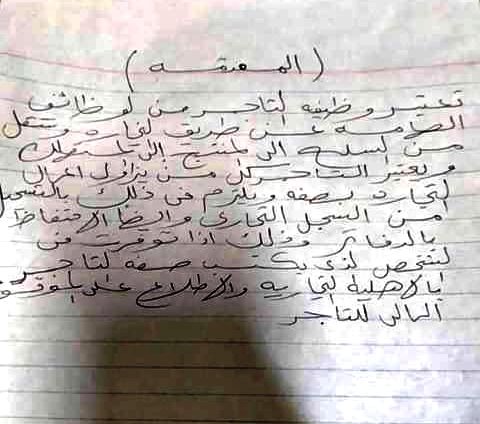 ( المقدمه )
تعتبر وظيفه لتاجر من لوظائف
الهامه عن طريق لتجاره وتنتقل
من لسله الى لمنتج الى لاستهلاك
ويعتبر التاجر كل من يزاول اعمال
لتجاره بصفه ويلتزم في ذلك بالتسجيل
من السجل التجارى وايضا الاحتفاظ
بالدفاتر وذلك اذا توفرت في
لشخص لذى يكتسب صفه لتاجر
بالاهليه لتجاريه والاطلاع على الموقف
المالى للتاجر